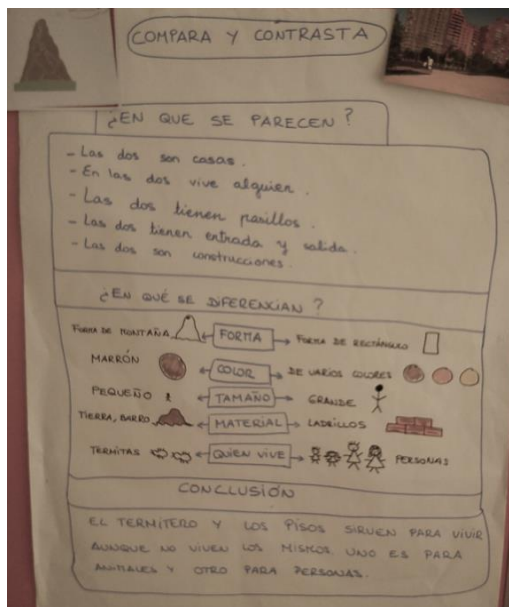 COMPARA Y CONTRASTA
¿EN QUE SE PARECEN?
- Las dos son casas.
- En las dos vive alguien.
- Las dos tienen pasillos.
- Las dos tienen entrada y salida.
- Las dos son construcciones.
¿EN QUÉ SE DIFERENCIAN?
FORMA DE MONTAÑA FORMA FORMA DE RECTÁNGULO
MARRÓN COLOR DE VARIOS COLORES
PEQUEÑO TAMAÑO GRANDE
TIERRA, BARRO MATERIAL LADRILLOS
TERMITAS QUIEN VIVE PERSONAS
CONCLUSIÓN
EL TERMITERO Y LOS PISOS SIRVEN PARA VIVIR
AUNQUE NO VIVEN LOS MISMOS. UNO ES PARA
ANIMALES Y OTRO PARA PERSONAS.